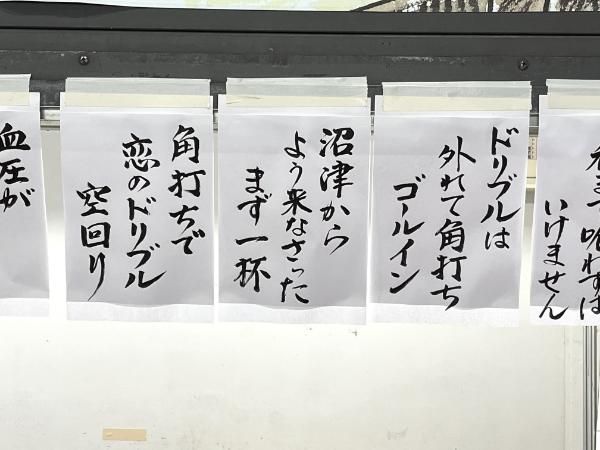 喰わずは
いけません
ドリブルは
外れて角打ち
ゴールイン
沼津から
よう来なさった
まず一杯
角打ちで
恋のドリブル
空回り
血圧が